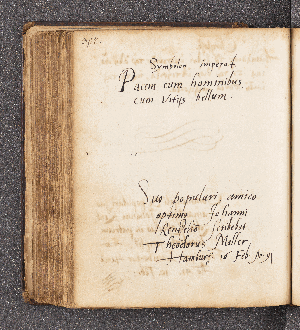 Symbolon Imperat.
Pacem cum hominibus,
cum Vitijs bellum.
Suo populari, amico
optimo Johanni
scribebat
Theodorus Möller,
Hamburg. 16 Feb. Ao